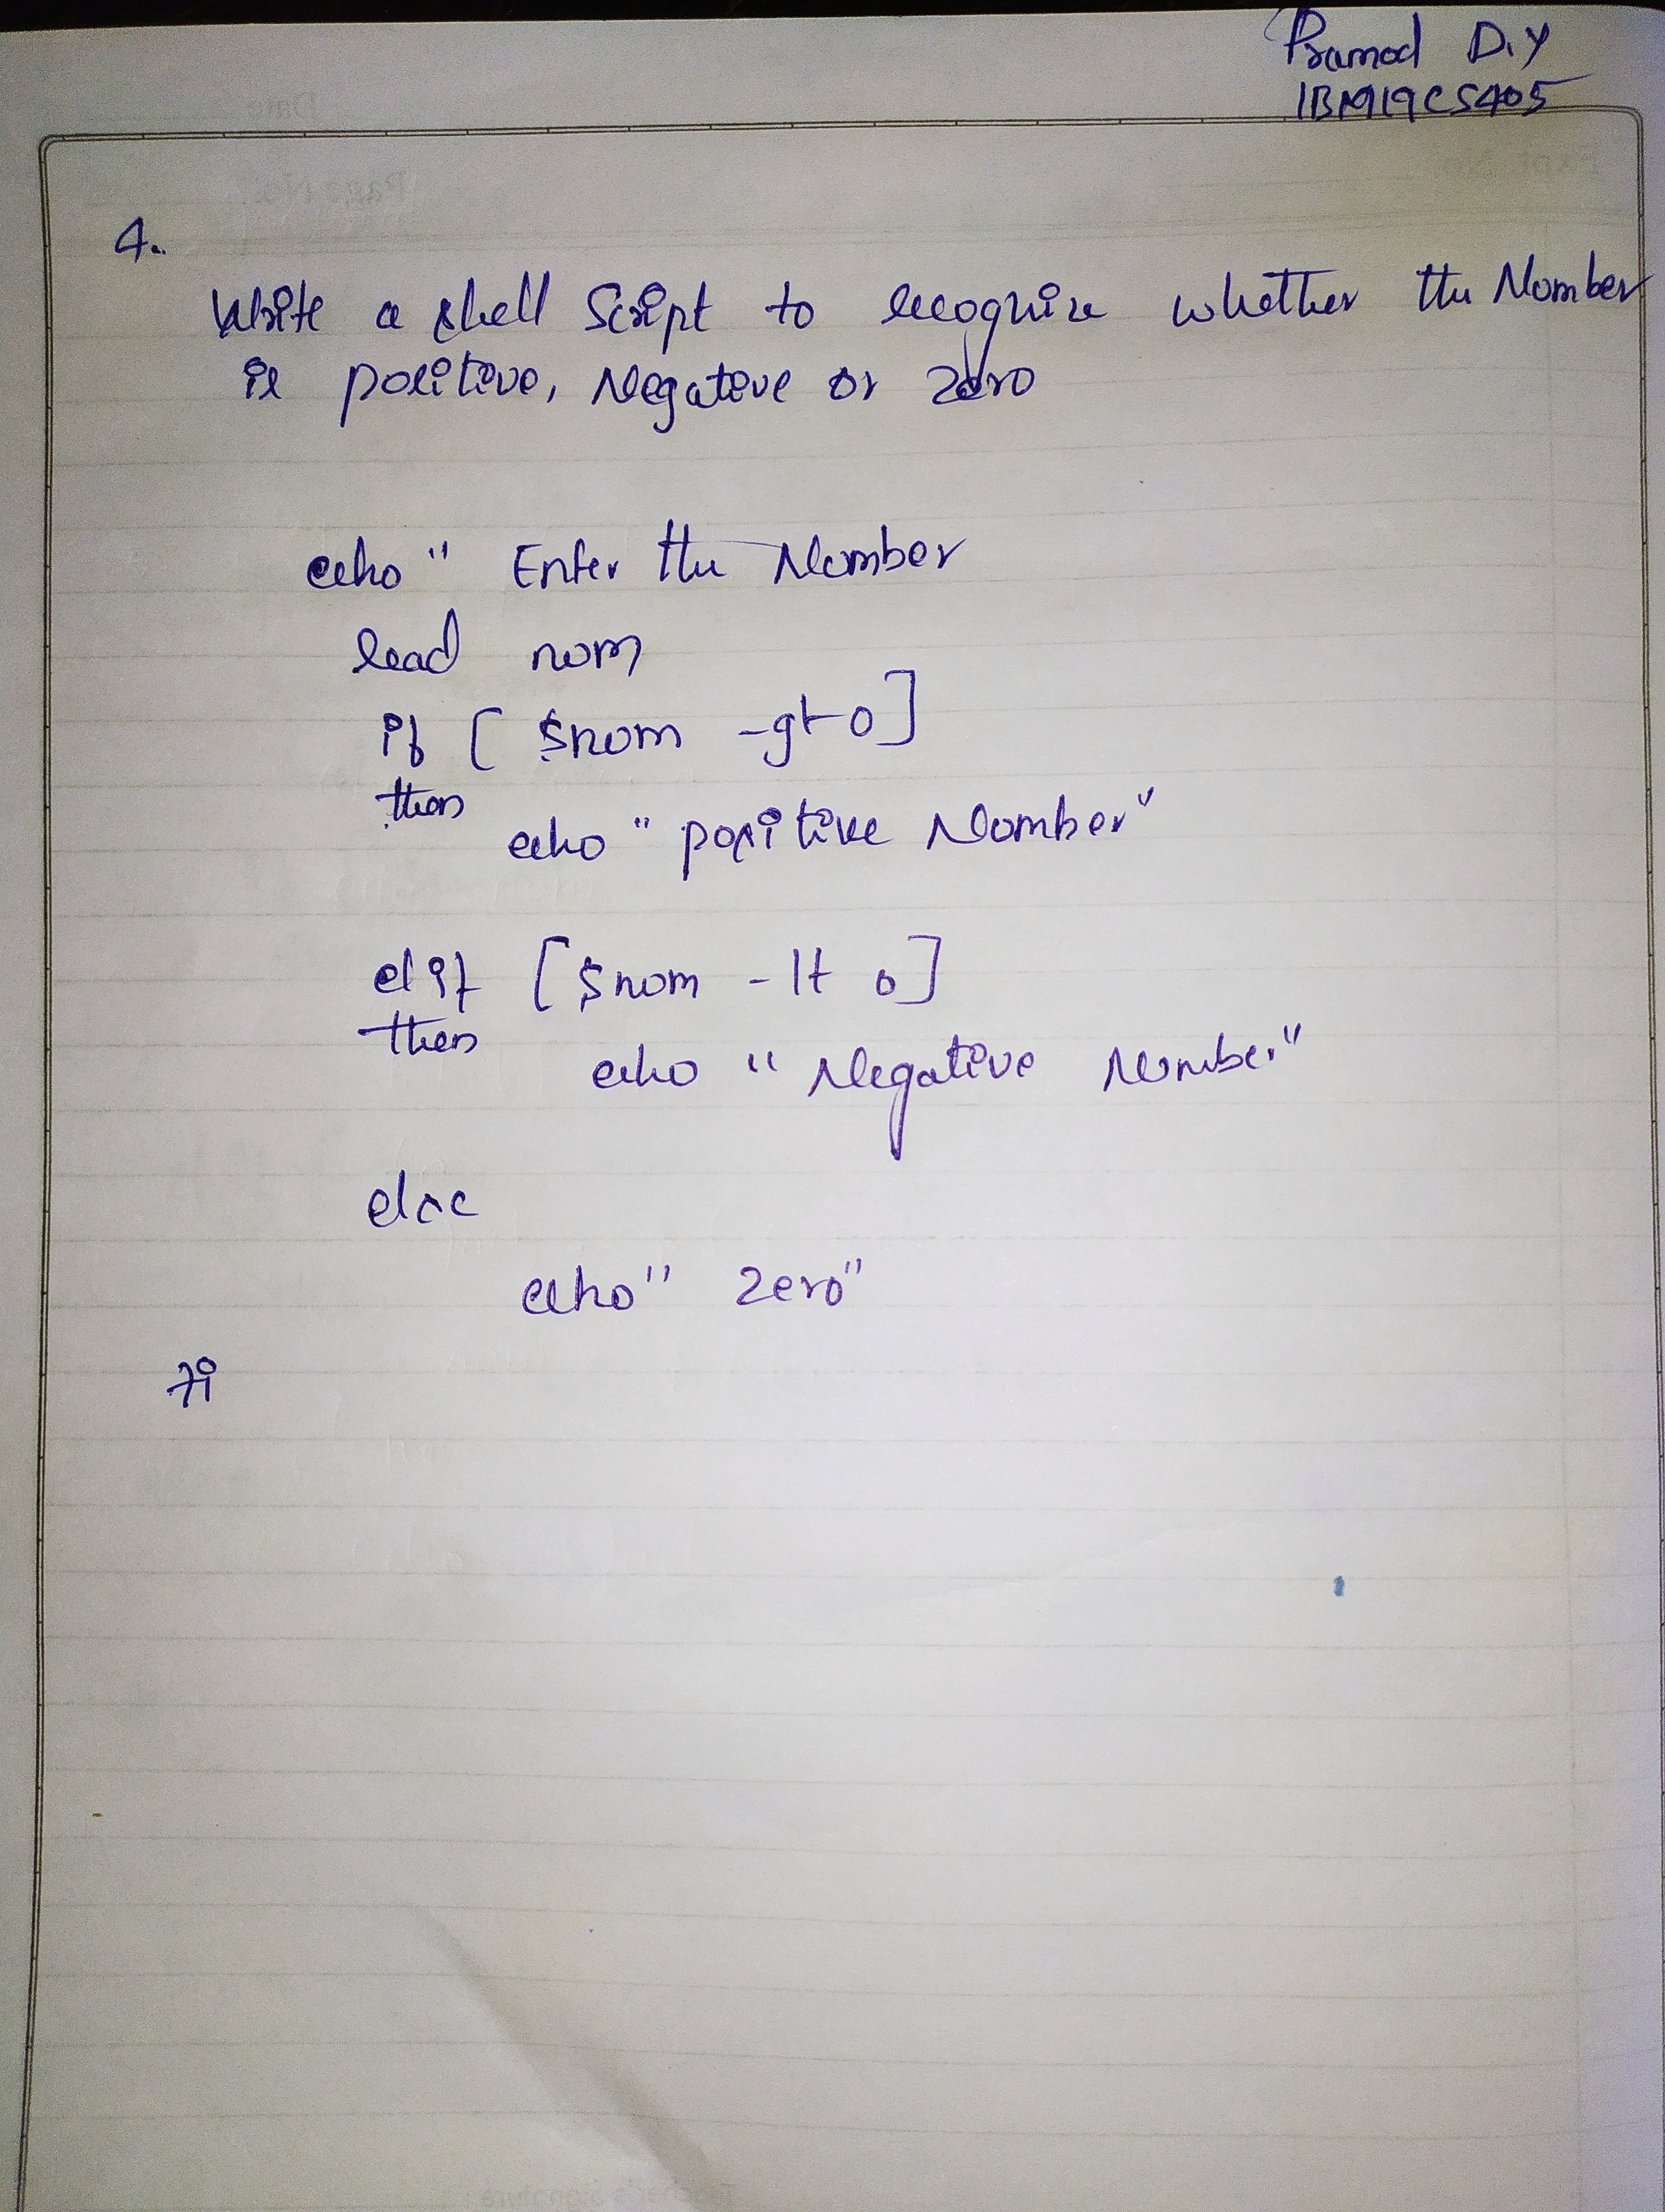 Pramod D.Y
1BM19CS405
4.
Write a shell Script to recognize whether the Number
is positive, Negative or Zero
echo " Enter the Number
read num
if [ $num -gt 0]
then
echo " positive Number"
elif [$num -lt 0]
then
echo " Negative Number"
else
echo " Zero"
fi